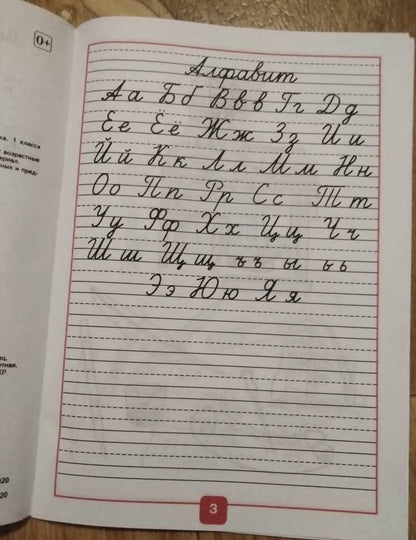 0+
Алфавит
Аа Бб Ввв Гг Дд
Ее Ёё Жж Зз Ии
Йй Кк Лл Мм Нн
Оо Пп Рр Сс Тт
Уу Фф Хх Цц Чч
Шш Щщ ъъ ы ьь
Ээ Юю Яя
1 класс»
возрастные
ных и пред-
20
3